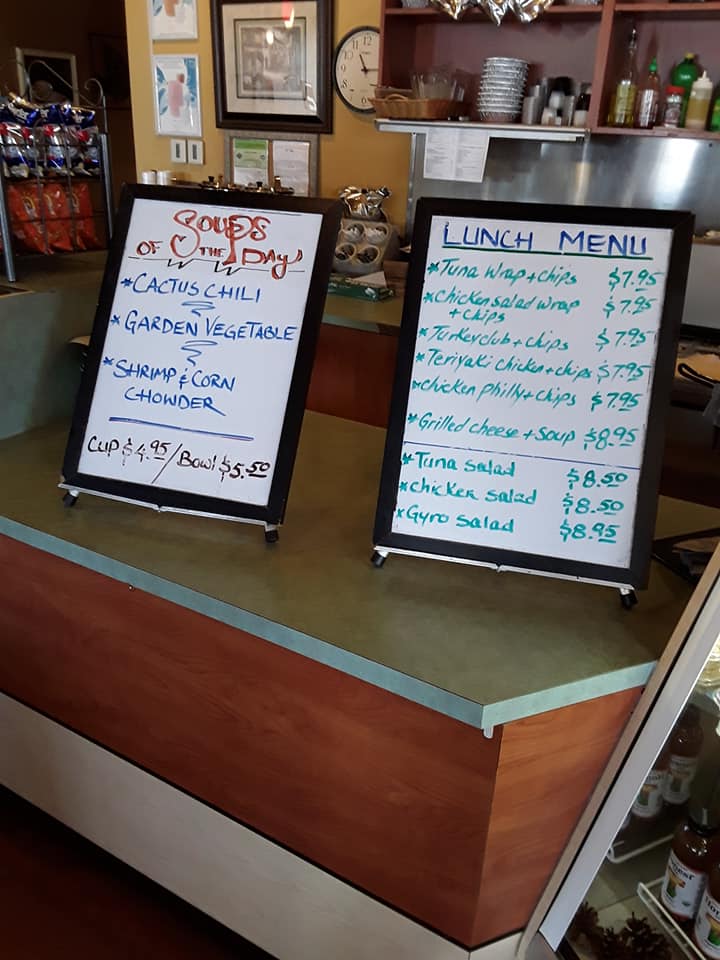 SOUPS
OF THE DAY!
*CACTUS CHILI
*GARDEN VEGETABLE
*SHRIMP & CORN
CHOWDER
CUP $4.95/BOWL $5.50
LUNCH MENU
*Tuna Wrap + chips $7.95
*Chicken salad wrap $7.95
+ chips
*Turkey club + chips $7.95
*Teriyaki chicken + chips $7.95
*chicken philly + chips $7.95
*Grilled cheese + soup $8.95
*Tuna salad $8.50
*chicken salad $8.50
*Gyro salad $8.95